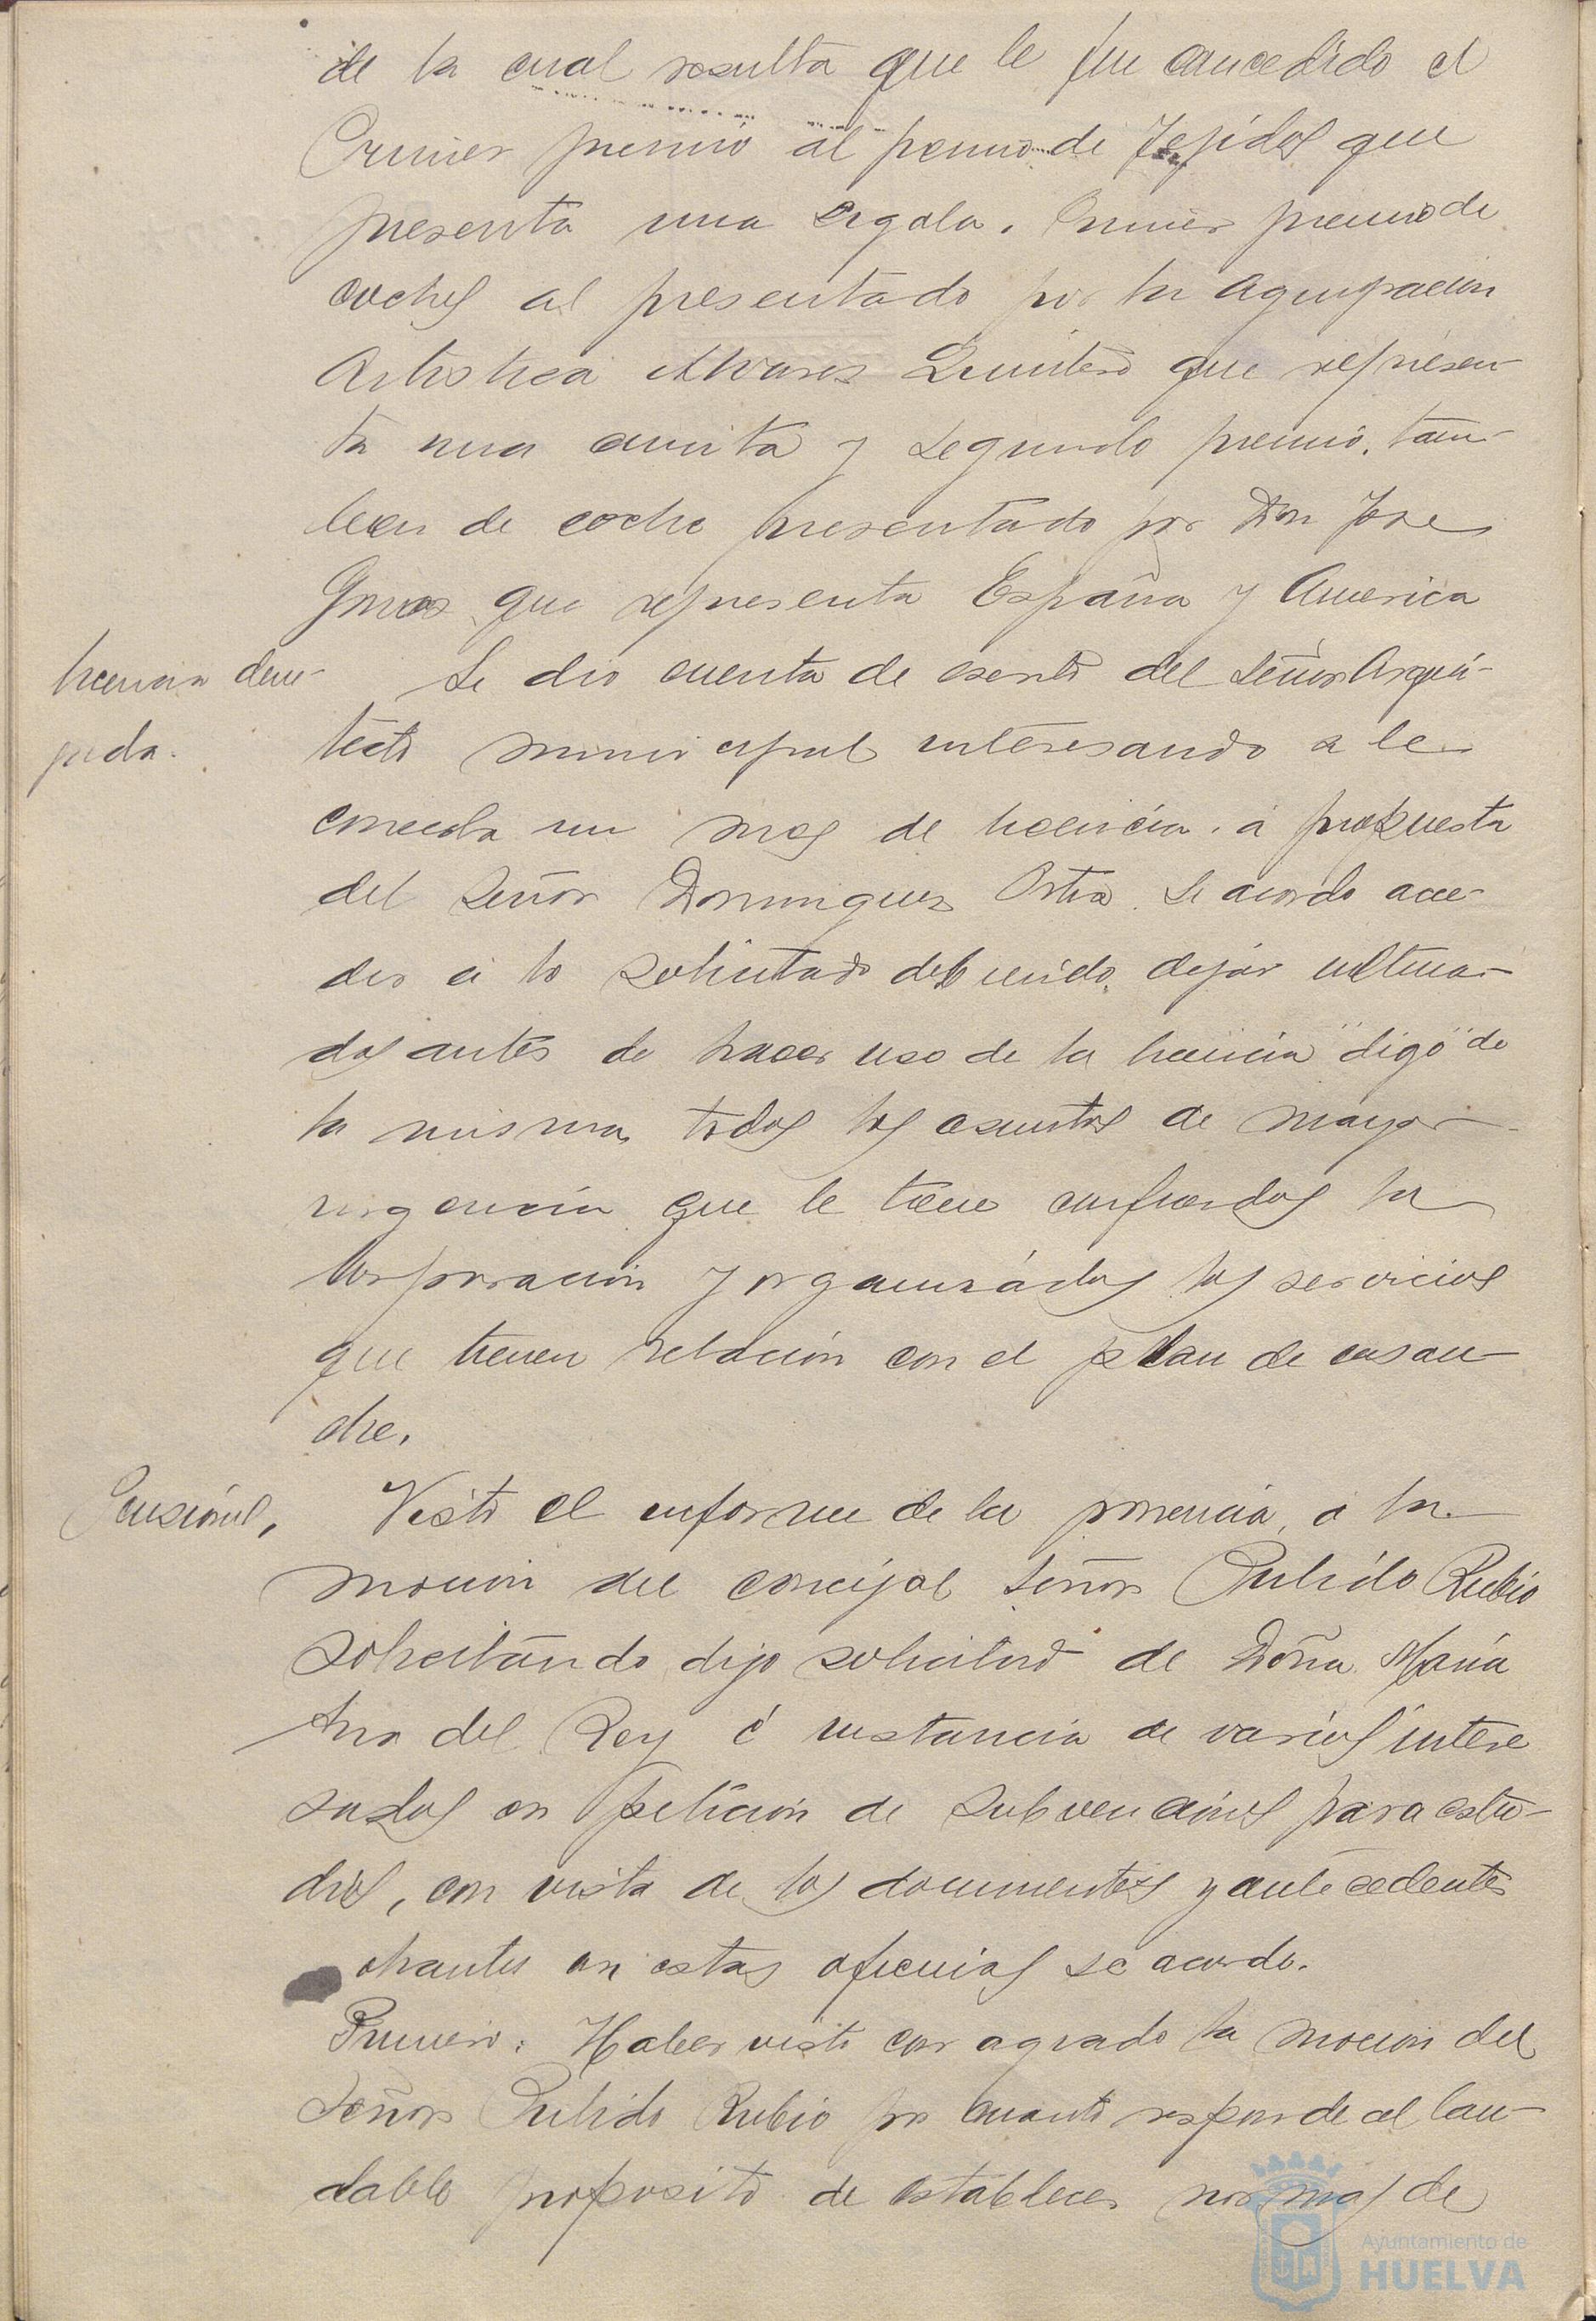 de la cual resulta que le fue concedido el
Primer premio al premio de Tejidos que
presenta una regala. Primer premio de
coches al presentado por la agrupación
Artistica Alvarez Quintero que represen-
ta una cunita y segundo premio, tam-
bien de coche presentado por Don Jose
que representa España y America
licencia dene-
gada.
Se dio cuenta de escrito del Señor Arqui-
tecto municipal interesando a le
conceda un mes de licencia. a propuesta
del Señor Dominguez Ortiz se acordo acce-
der a lo solicitado debiendo, dejar ultima-
dos antes de hacer uso de la licencia "digo" de
la misma, todos los asuntos de mayor
urgencia que le tiene confiados la
Corporacion y organizados los servicios
que tienen relación con el plan de ensan-
che.
Pensiónes,
Visto el informe de la ponencia, a la
mocion del concejal señor Pulido Rubio
solicitando, digo solicitud de Doña Maria
Ana del Rey é instancia de varios intere
sados en petición de subvenciónes para estu-
dios, con vista de los documentos y antecedentes
obrantes en estas oficinas se acordo.
Primero: Haber visto con agrado la mocion del
Señor Pulido Rubio por cuanto responde al lau-
dable proposito de establecer normas de
Ayuntamiento de
HUELVA